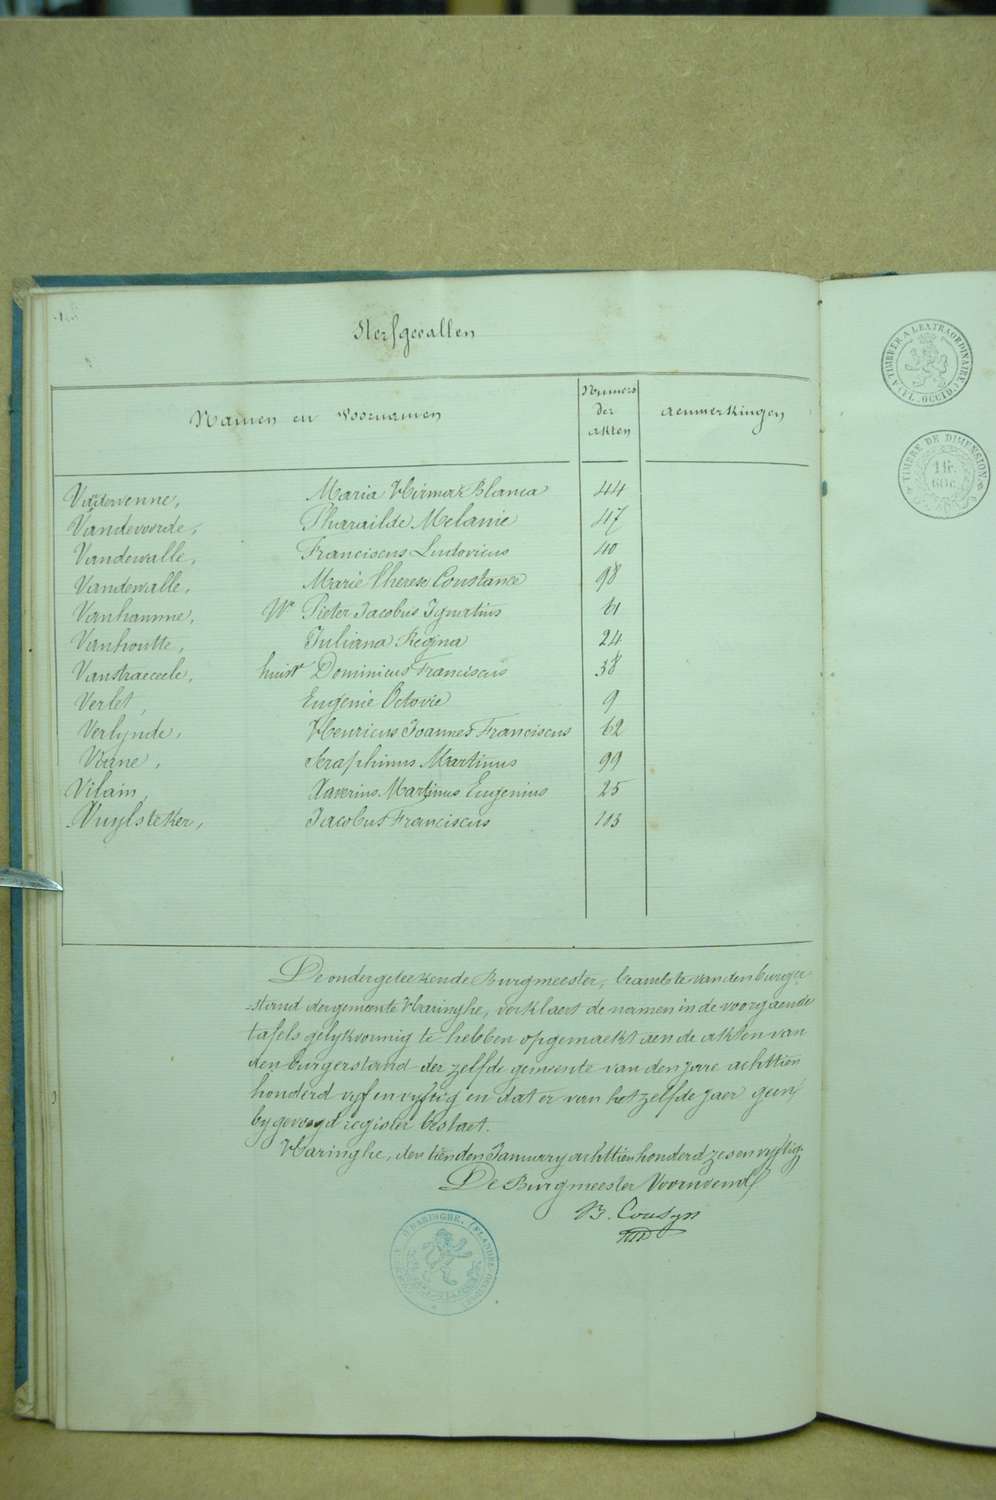 Sterfgevallen
Namen en Voornamen
Numero der akten
Aenmerkingen
Vandewenne, Maria Hirma Blanca 44
Vandevoorde, Pharailde Melanie 47
Vandewalle, Franciscus Ludovicus 40
Vandewalle, Marie Therese Constance 98
Vanhamme, Wr Pieter Jacobus Ignatius 61
Vanhoutte, Juliana Regina 24
Vanstraeceele, huisr Dominicus Franciscus 38
Verlet, Eugenie Octovie 9
Verlynde, Henricus Joannes Franciscus 62
Voane, Seraphinus Martinus 99
Vilain, Xaverius Martinus Eugenius 25
Vuylsteker, Jacobus Franciscus 103
De ondergeteekende Burgmeester, beambte van den burger
-stand der gemeente Haringhe, verklaert de namen in de voorgaende
tafels gelykvormig te hebben opgemaekt aen de akten van
den burgerstand der zelfde gemeente van den jare achttien
honderd vyf en vyftig en dat er van het zelfde jaer geen
bygevoegd register bestaet.
Haringhe, den tienden January achttien honderd zes en vyftig
De Burgmeester Voornoemd
B. Cousyn
TIMBRE A L'EXTRAORDINAIRE
FL. OCCID.
TIMBRE DE DIMENSION
1 fr.
60 c.
HARINGHE. (FLANDRE OCCIDle)